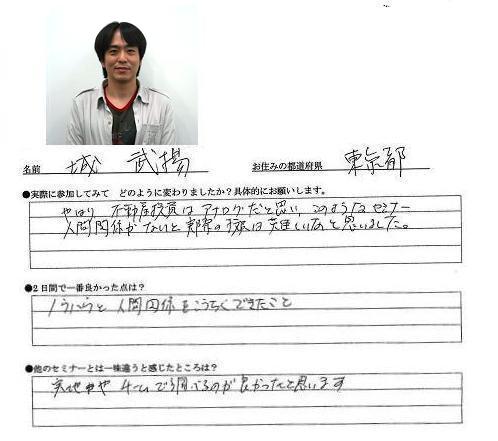 名前 城 武揚 お住みの都道府県 東京都
●実際に参加してみて どのように変わりましたか?具体的にお願いします。
やはり 不動産投資はアナログだと思い、このようなセミナー
人間関係がないと 実際の投資は難しいなと思いました。
●2日間で一番良かった点は?
ノウハウと人間関係をこうちくできたこと
●他のセミナーとは一味違うと感じたところは?
実地やチームで調べるのが良かったと思います